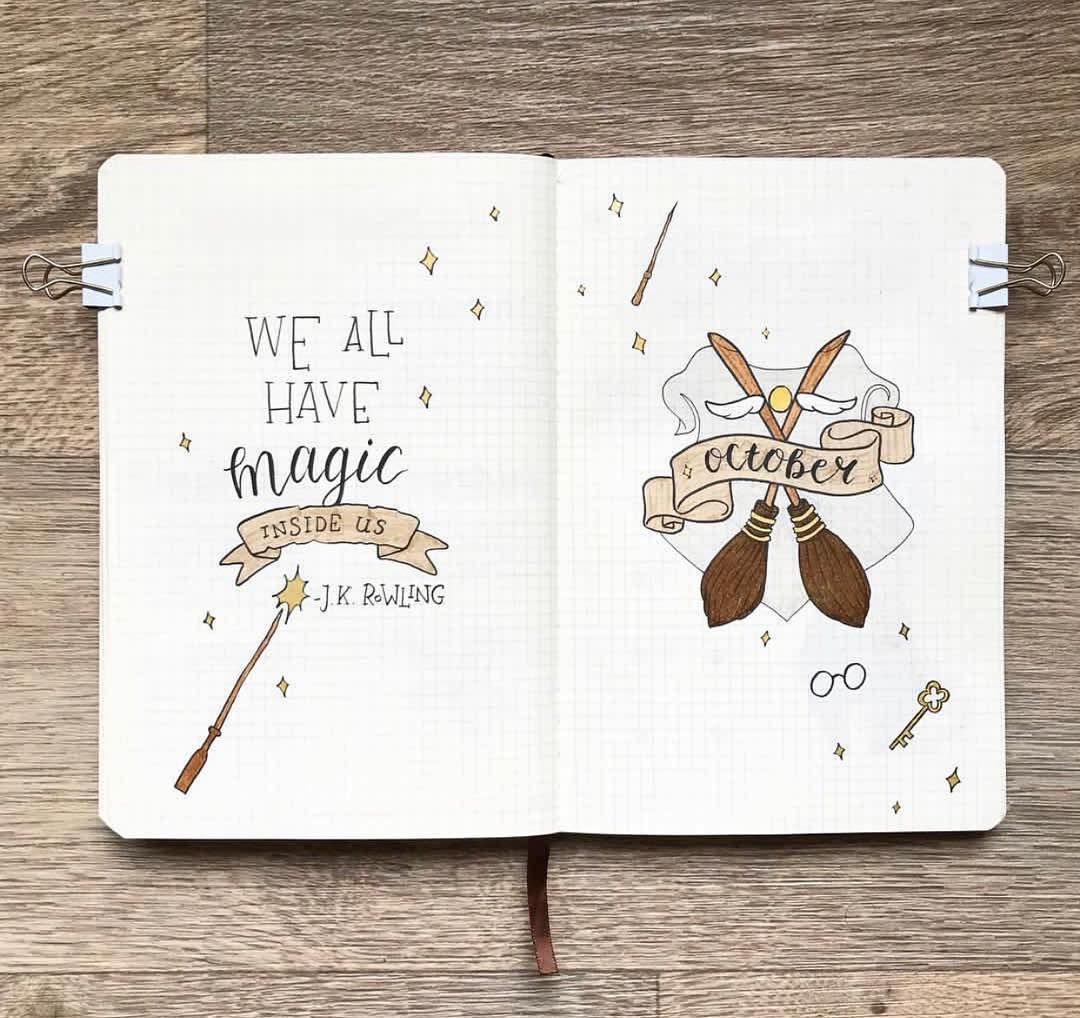 WE ALL
HAVE
magic
INSIDE US
-J.K. ROWLING
october